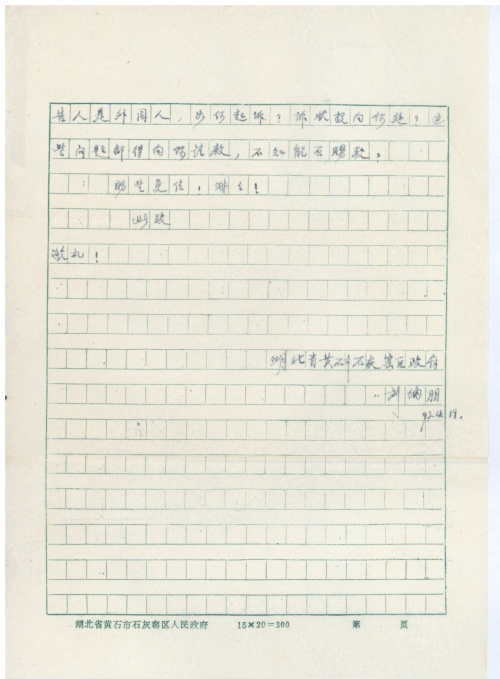 告人是外国人，如何起诉？诉状投向何处？这
些问题都得向您请教，不知能否赐教，
盼望复信，谢谢！
此致
敬礼！
湖北省黄石市石灰窑区政府
刘纳朋
92.4.19.
湖北省黄石市石灰窑区人民政府 15×20=300 第 页